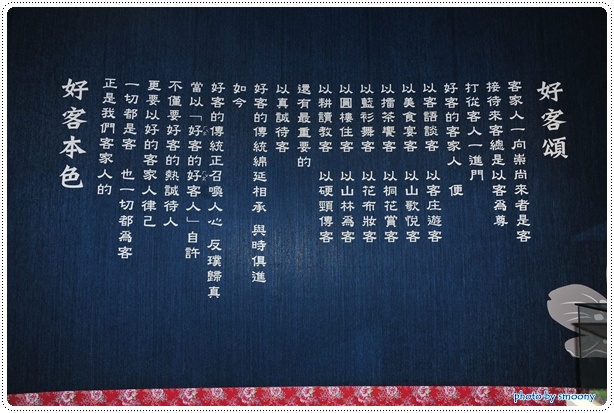 好客頌
客家人一向崇尚來者是客
接待來客總是以客為尊
打從客人一進門
好客的客家人 便
以客語談客 以客庄遊客
以美食宴客 以山歌悅客
以擂茶饗客 以桐花賞客
以藍衫舞客 以花布妝客
以圓樓住客 以山林為客
以耕讀教客 以硬頸傳客
還有最重要的
以真誠待客
好客的傳統綿延相承 與時俱進
如今
好客的傳統正召喚人心 反璞歸真
當以「好客的好客人」自許
不僅要好客的熱誠待人
更要以好的客家人律己
一切都是客 也一切都為客
正是我們客家人的
好客本色
photo by smoony